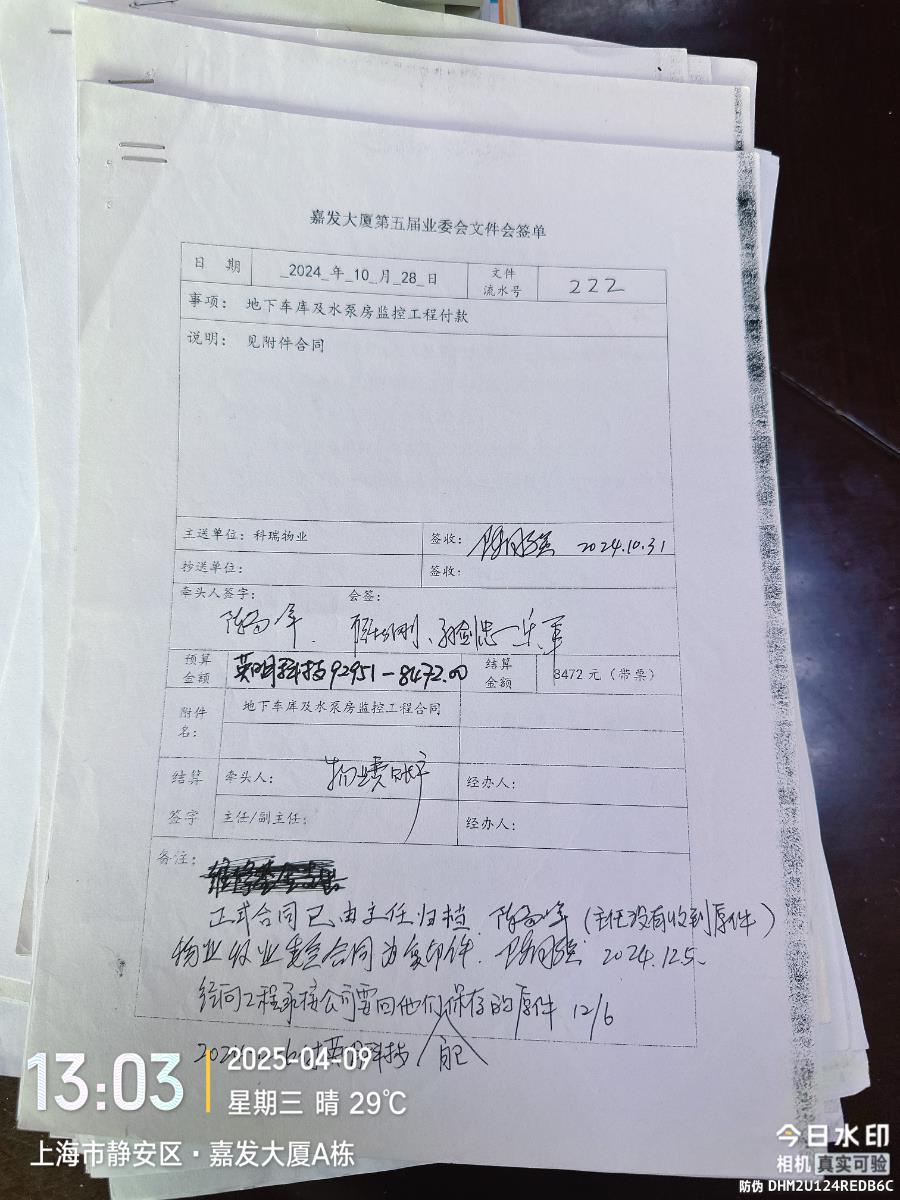 嘉发大厦第五届业委会文件会签单
日 期 2024 年 10 月 28 日 文件流水号 222
事项： 地下车库及水泵房监控工程付款
说明： 见附件合同
主送单位：科瑞物业 签收： 2024.10.31
抄送单位： 签收：
牵头人签字： 会签：
预算金额 英明科技92951-8472.00 结算金额 8472 元（带票）
附件名： 地下车库及水泵房监控工程合同
结算签字 牵头人： 经办人：
主任/副主任： 经办人：
备注：
正式合同已由主任归档 （主任没有收到原件）
物业收业委会合同为复印件. 2024.12.5
经向工程承接公司要回他们自己保存的原件 12/6
英明科技
13:03
2025-04-09
星期三 晴 29℃
上海市静安区·嘉发大厦A栋
今日水印
相机 真实可验
防伪 DHM2U124REDB6C